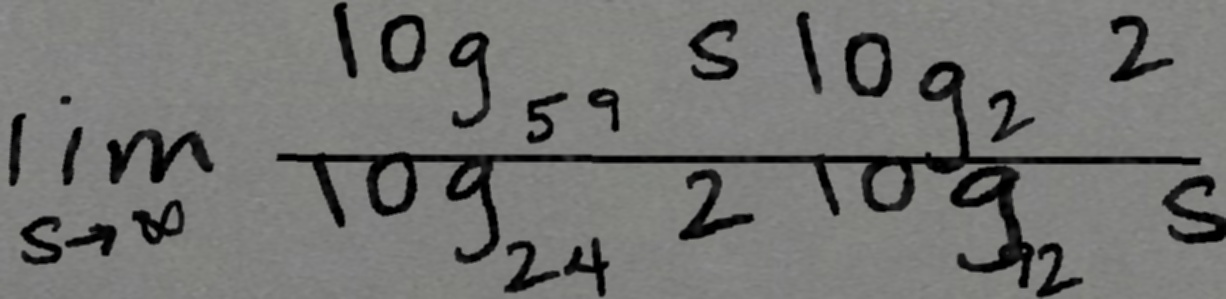 \lim_{s \to \infty} \frac{\log_{59} s \log_{2} 2}{\log_{24} 2 \log_{92} s}